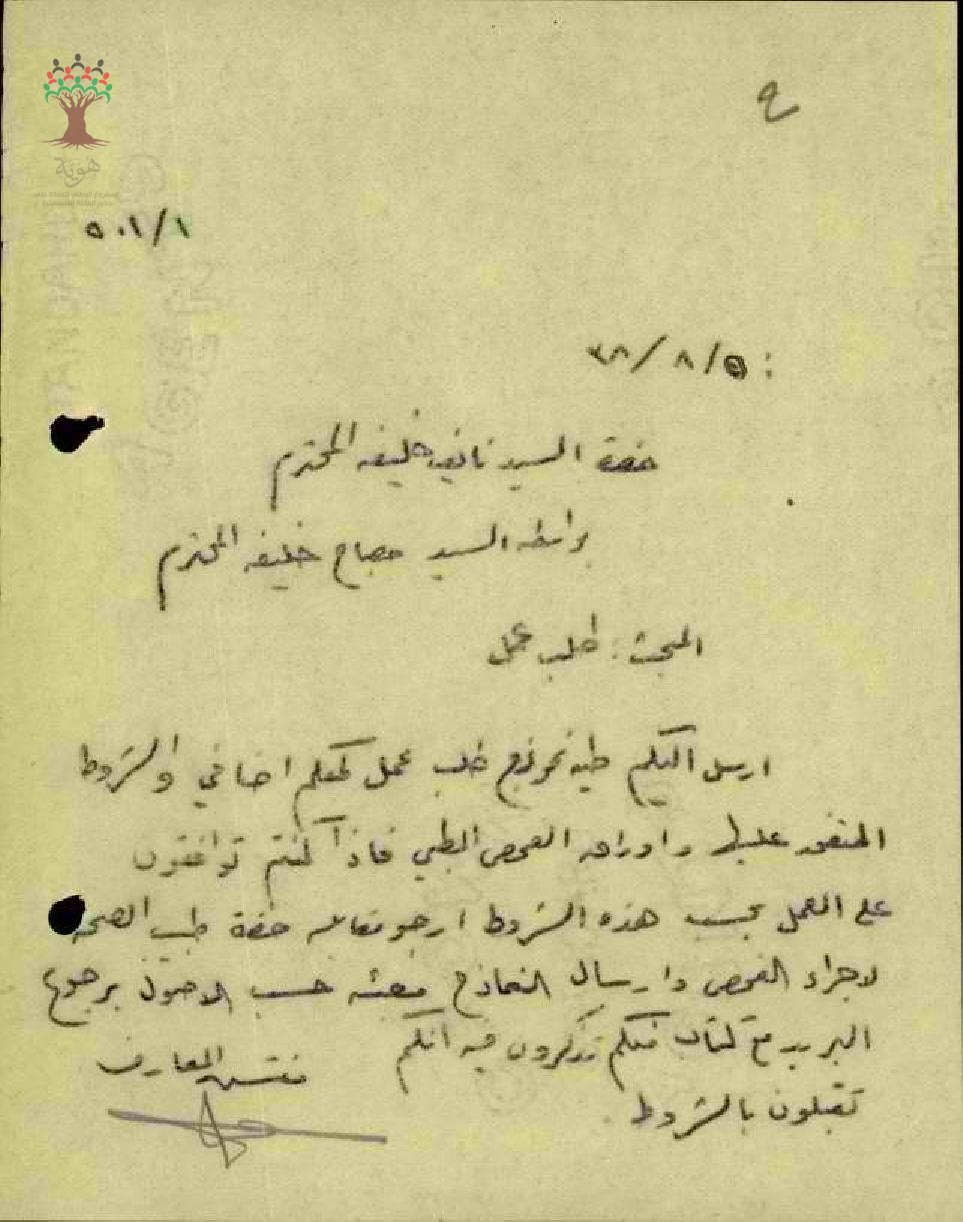 ٩
هوية
المشروع الوطني للحفاظ على
جذور العائلة الفلسطينية
٥٠١/١
: ٥/٨/٣٨
حضرة السيد نايف خليفه المحترم
بواسطة السيد مصباح خليفه المحترم
المبحث : طلب عمل
ارسل اليكم طيه نموذج طلب عمل كمعلم اضافي والشروط
المتفق عليها واوراق الفحص الطبي فاذا كنتم توافقون
على العمل بحسب هذه الشروط ارجو مقابلة حضرة طبيب الصحة
لاجراء الفحص وارسال النماذج معبئه حسب الاصول برجوع
البريد مع كتاب منكم تذكرون فيه انكم
تقبلون بالشروط .
مفتش المعارف